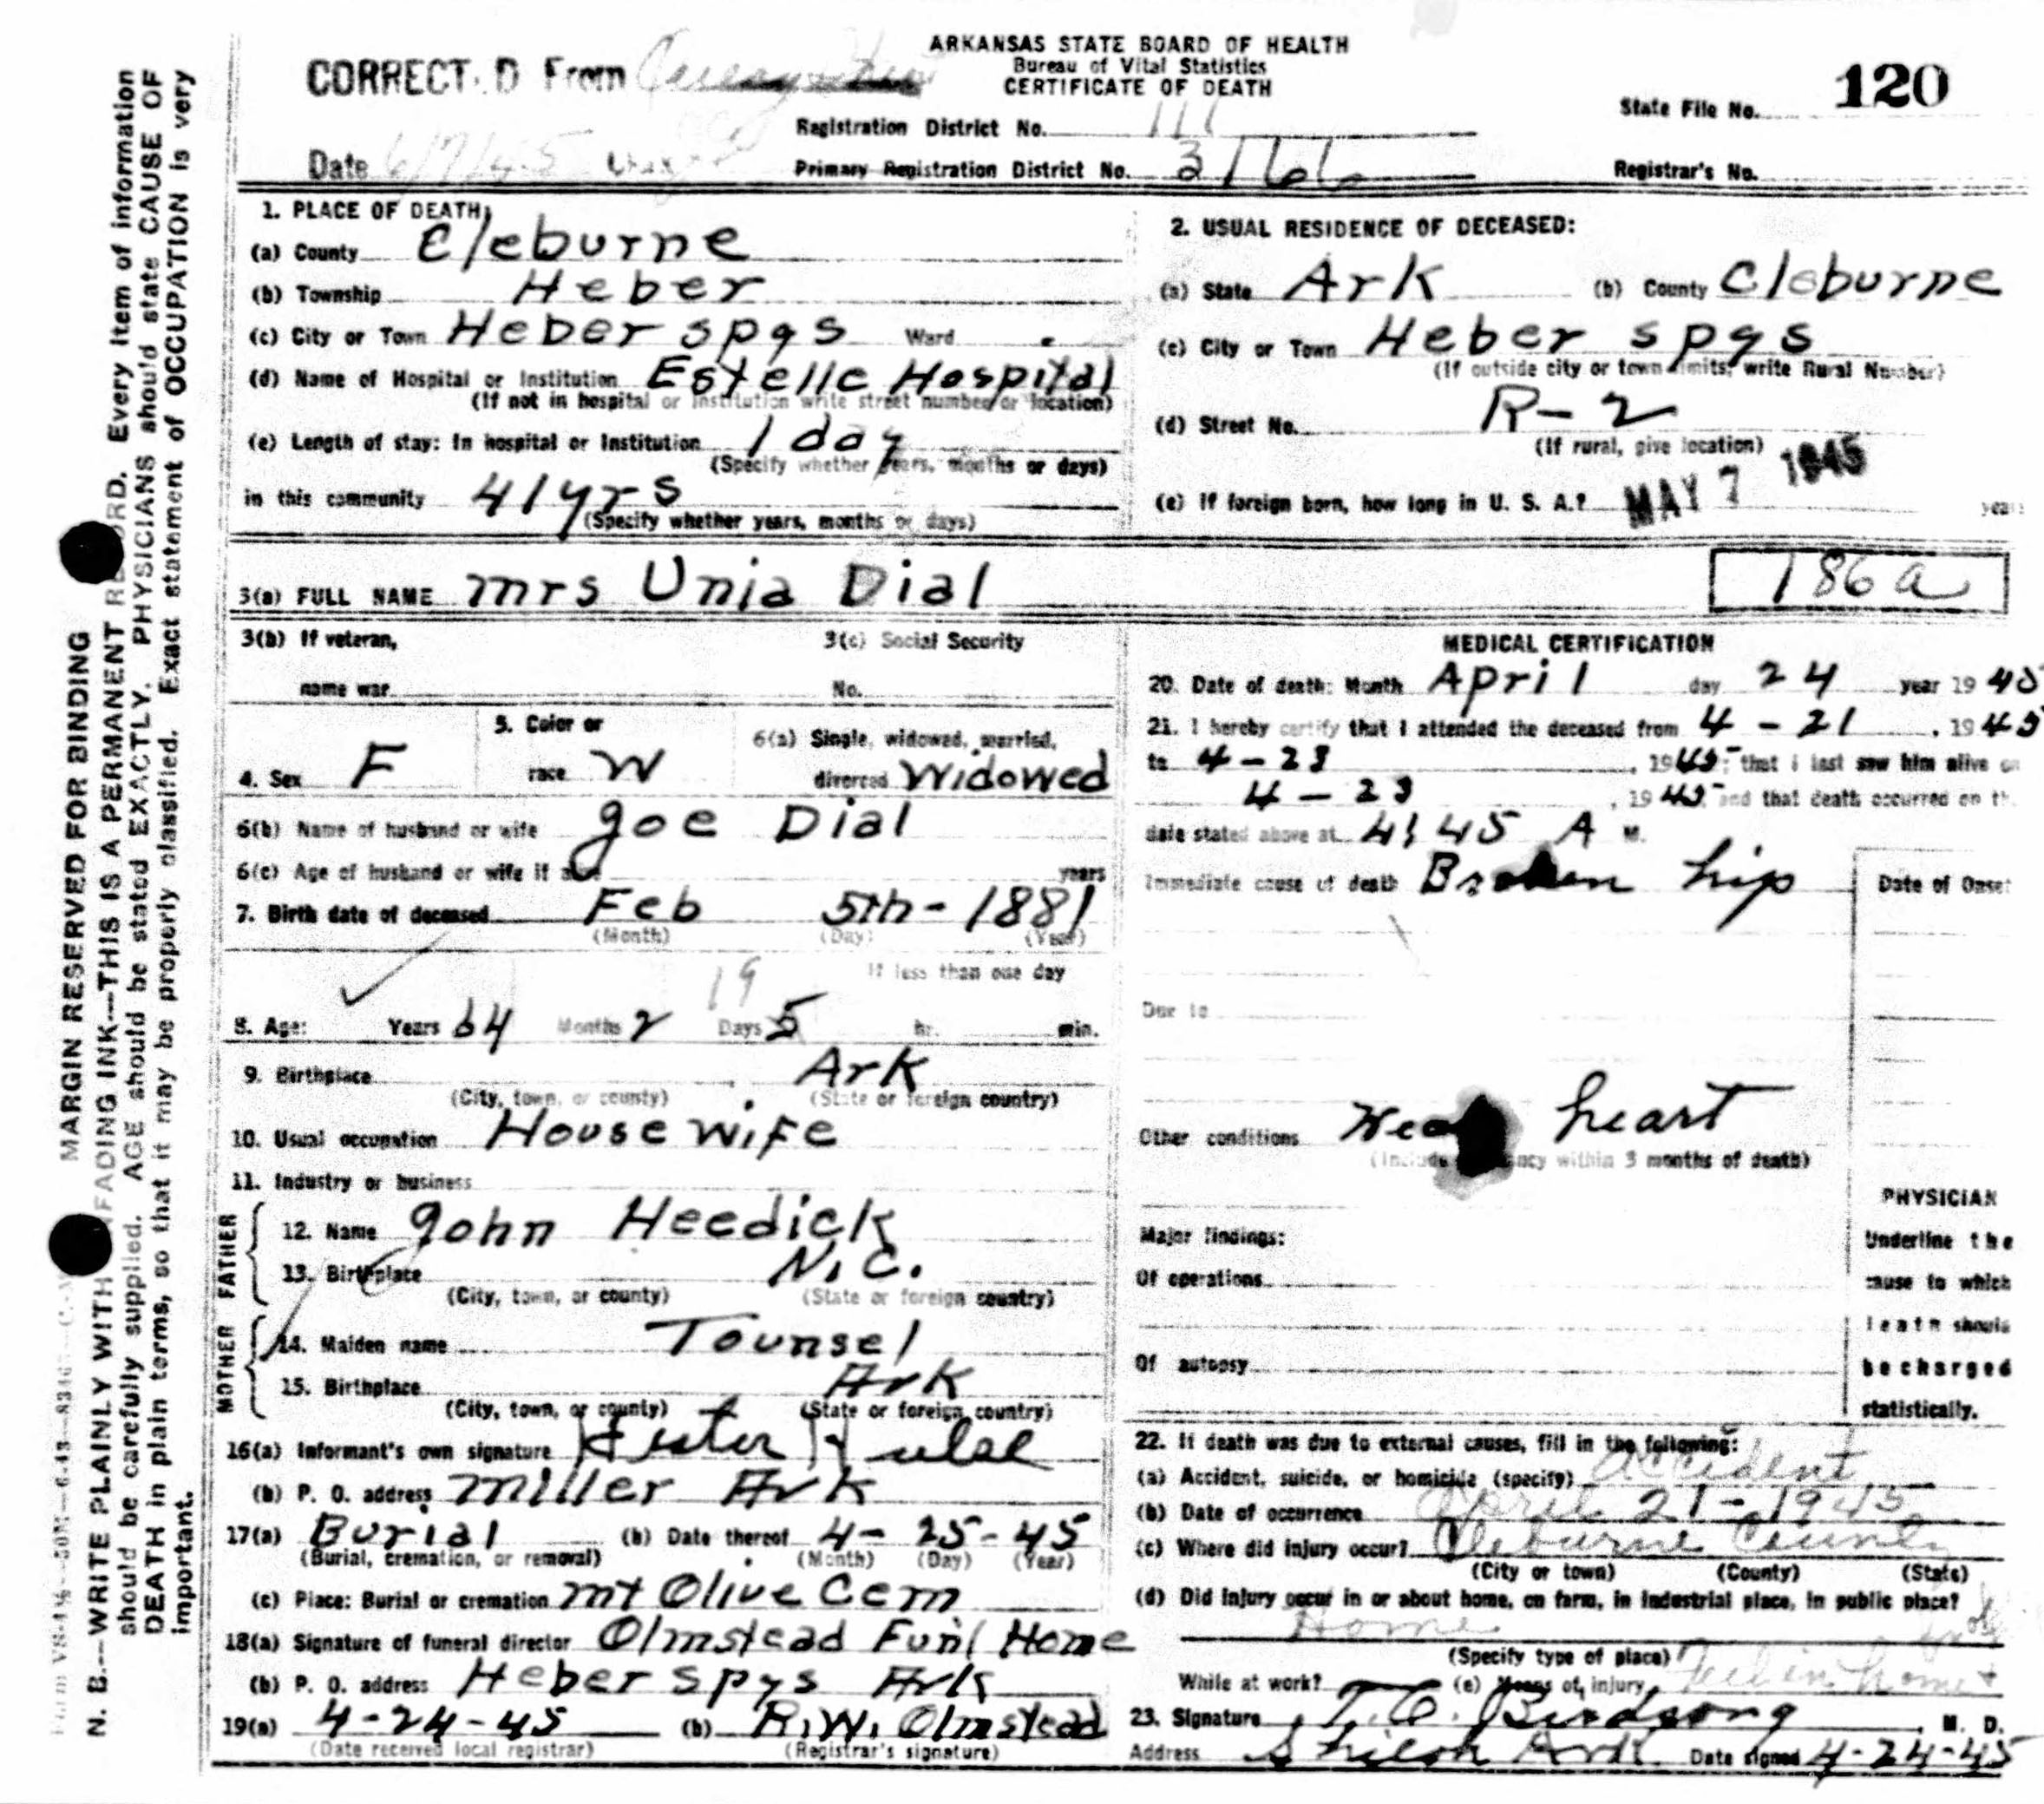 ARKANSAS STATE BOARD OF HEALTH
Bureau of Vital Statistics
CERTIFICATE OF DEATH
CORRECT. D From
Date 6/7/45
Registration District No. 111
Primary Registration District No. 3166
State File No. 120
Registrar's No.
MARGIN RESERVED FOR BINDING
N. B.—WRITE PLAINLY WITH FADING INK—THIS IS A PERMANENT RE ORD. Every item of information
should be carefully supplied. AGE should be stated EXACTLY. PHYSICIANS should state CAUSE OF
DEATH in plain terms, so that it may be properly classified. Exact statement of OCCUPATION is very
important.
1. PLACE OF DEATH:
(a) County Cleburne
(b) Township Heber
(c) City or Town Heber spgs Ward
(d) Name of Hospital or Institution Estelle Hospital
(If not in hospital or institution write street number or location)
(e) Length of stay: In hospital or Institution 1 day
(Specify whether years, months or days)
in this community 41 yrs
(Specify whether years, months or days)
2. USUAL RESIDENCE OF DECEASED:
(a) State Ark (b) County Cleburne
(c) City or Town Heber spgs
(If outside city or town limits, write Rural Number)
(d) Street No. R-2
(If rural, give location)
(e) If foreign born, how long in U. S. A.? years
MAY 7 1945
3(a) FULL NAME mrs Unia Dial
186a
3(b) If veteran, 3(c) Social Security
name war No.
4. Sex F
5. Color or
race W
6(a) Single, widowed, married,
divorced Widowed
6(b) Name of husband or wife Joe Dial
6(c) Age of husband or wife if alive years
7. Birth date of deceased Feb 5th - 1881
(Month) (Day) (Year)
19 If less than one day
8. Age: Years 64 Months 2 Days 5 hr. min.
9. Birthplace Ark
(City, town, or county) (State or foreign country)
10. Usual occupation House wife
11. Industry or business
FATHER
12. Name John Heedick
13. Birthplace N.C.
(City, town, or county) (State or foreign country)
MOTHER
14. Maiden name Tounsel
15. Birthplace Ark
(City, town, or county) (State or foreign country)
16(a) Informant's own signature
(b) P. O. address Miller Ark
17(a) Burial (b) Date thereof 4-25-45
(Burial, cremation, or removal) (Month) (Day) (Year)
(c) Place: Burial or cremation mt Olive Cem
18(a) Signature of funeral director Olmstead Funl Home
(b) P. O. address Heber spgs Ark
19(a) 4-24-45 (b) R.W. Olmstead
(Date received local registrar) (Registrar's signature)
MEDICAL CERTIFICATION
20. Date of death: Month April day 24 year 19 45
21. I hereby certify that I attended the deceased from 4-21, 1945
to 4-23, 1945; that I last saw him alive on
4-23, 1945 and that death occurred on th
date stated above at 4:45 A M.
Immediate cause of death Broken hip
Date of Onset
Due to
Other conditions heart
(Include ncy within 3 months of death)
PHYSICIAN
Underline the
cause to which
death should
be charged
statistically.
Major findings:
Of operations
Of autopsy
22. If death was due to external causes, fill in the following:
(a) Accident, suicide, or homicide (specify) accident
(b) Date of occurrence April 21-1945
(c) Where did injury occur? Cleburne County
(City or town) (County) (State)
(d) Did injury occur in or about home, on farm, in industrial place, in public place?
Home
(Specify type of place)
While at work? (e) Means of injury Fell in home
23. Signature T.C. Birdsong, M. D.
Address Shiloh Ark Date signed 4-24-45